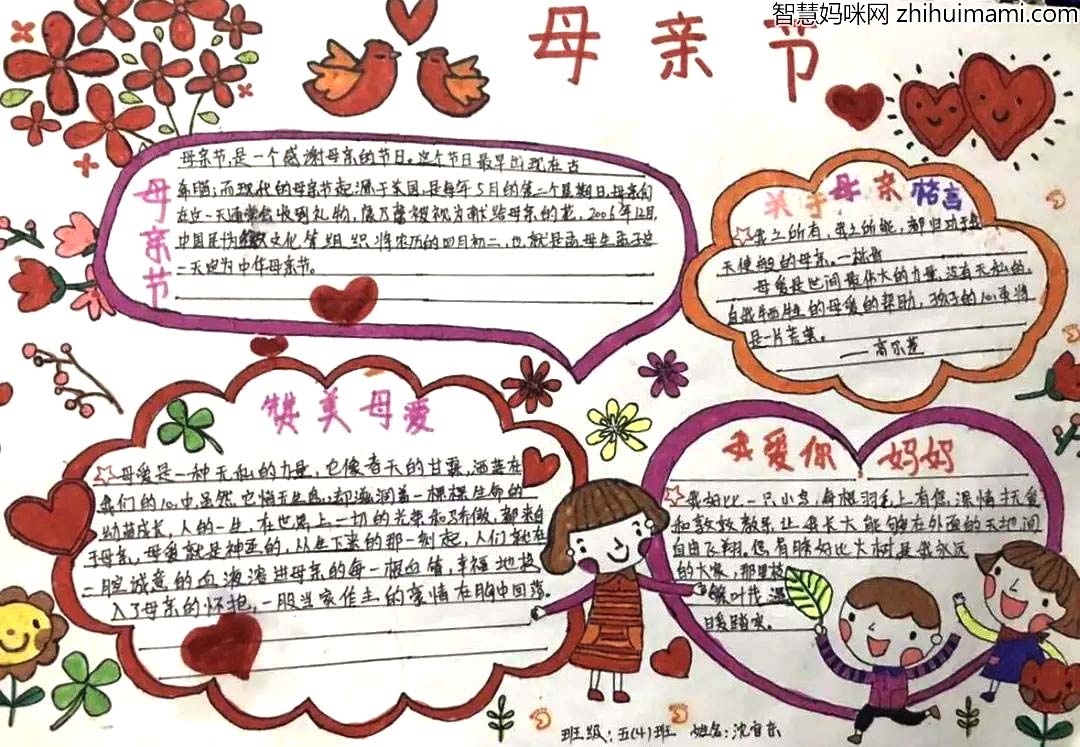 智慧妈咪网 zhihuimami.com
母亲节
母亲节
母亲节,是一个感谢母亲的节日。这个节日最早出现在古
希腊;而现代的母亲节起源于美国,是每年5月的第二个星期日。母亲们
在这一天通常会收到礼物,康乃馨被视为献给母亲的花,2006年12月,
中国民协 文化管组织将农历的四月初二,也就是孟母生孟子这
一天定为中华母亲节。
关于母亲格言
我之所有,我之所能,都归功于我
天使般的母亲。一林肯
母爱是世间最伟大的力量,没有无私的,
自我牺牲的母爱的帮助,孩子的心灵将
是一片荒漠。
——高尔基
赞美母爱
母爱是一种无私的力量,也像春天的甘露,洒落在
我们的心中虽然它悄无生息,却滋润着一棵棵生命的
幼苗成长,人的一生,在世界上一切的光荣和骄傲,都来自
于母亲,母爱就是神圣的,从生下来的那一刻起,人们就在
二腔诚意的血液溶进母亲的每一根血管,幸福地投
入了母亲的怀抱,一股当家作主的豪情在胸中回荡。
我爱你,妈妈
我好比一只小鸟,每根羽毛上有您,深情抚爱
和敦敦教导,让我长大能够在外面的天地间
自由飞翔。您有时好比大树是我永远
的大家,那里枝
叶茂,温
日爱踏实。
班级:五(4)班 姓名:沈宜东